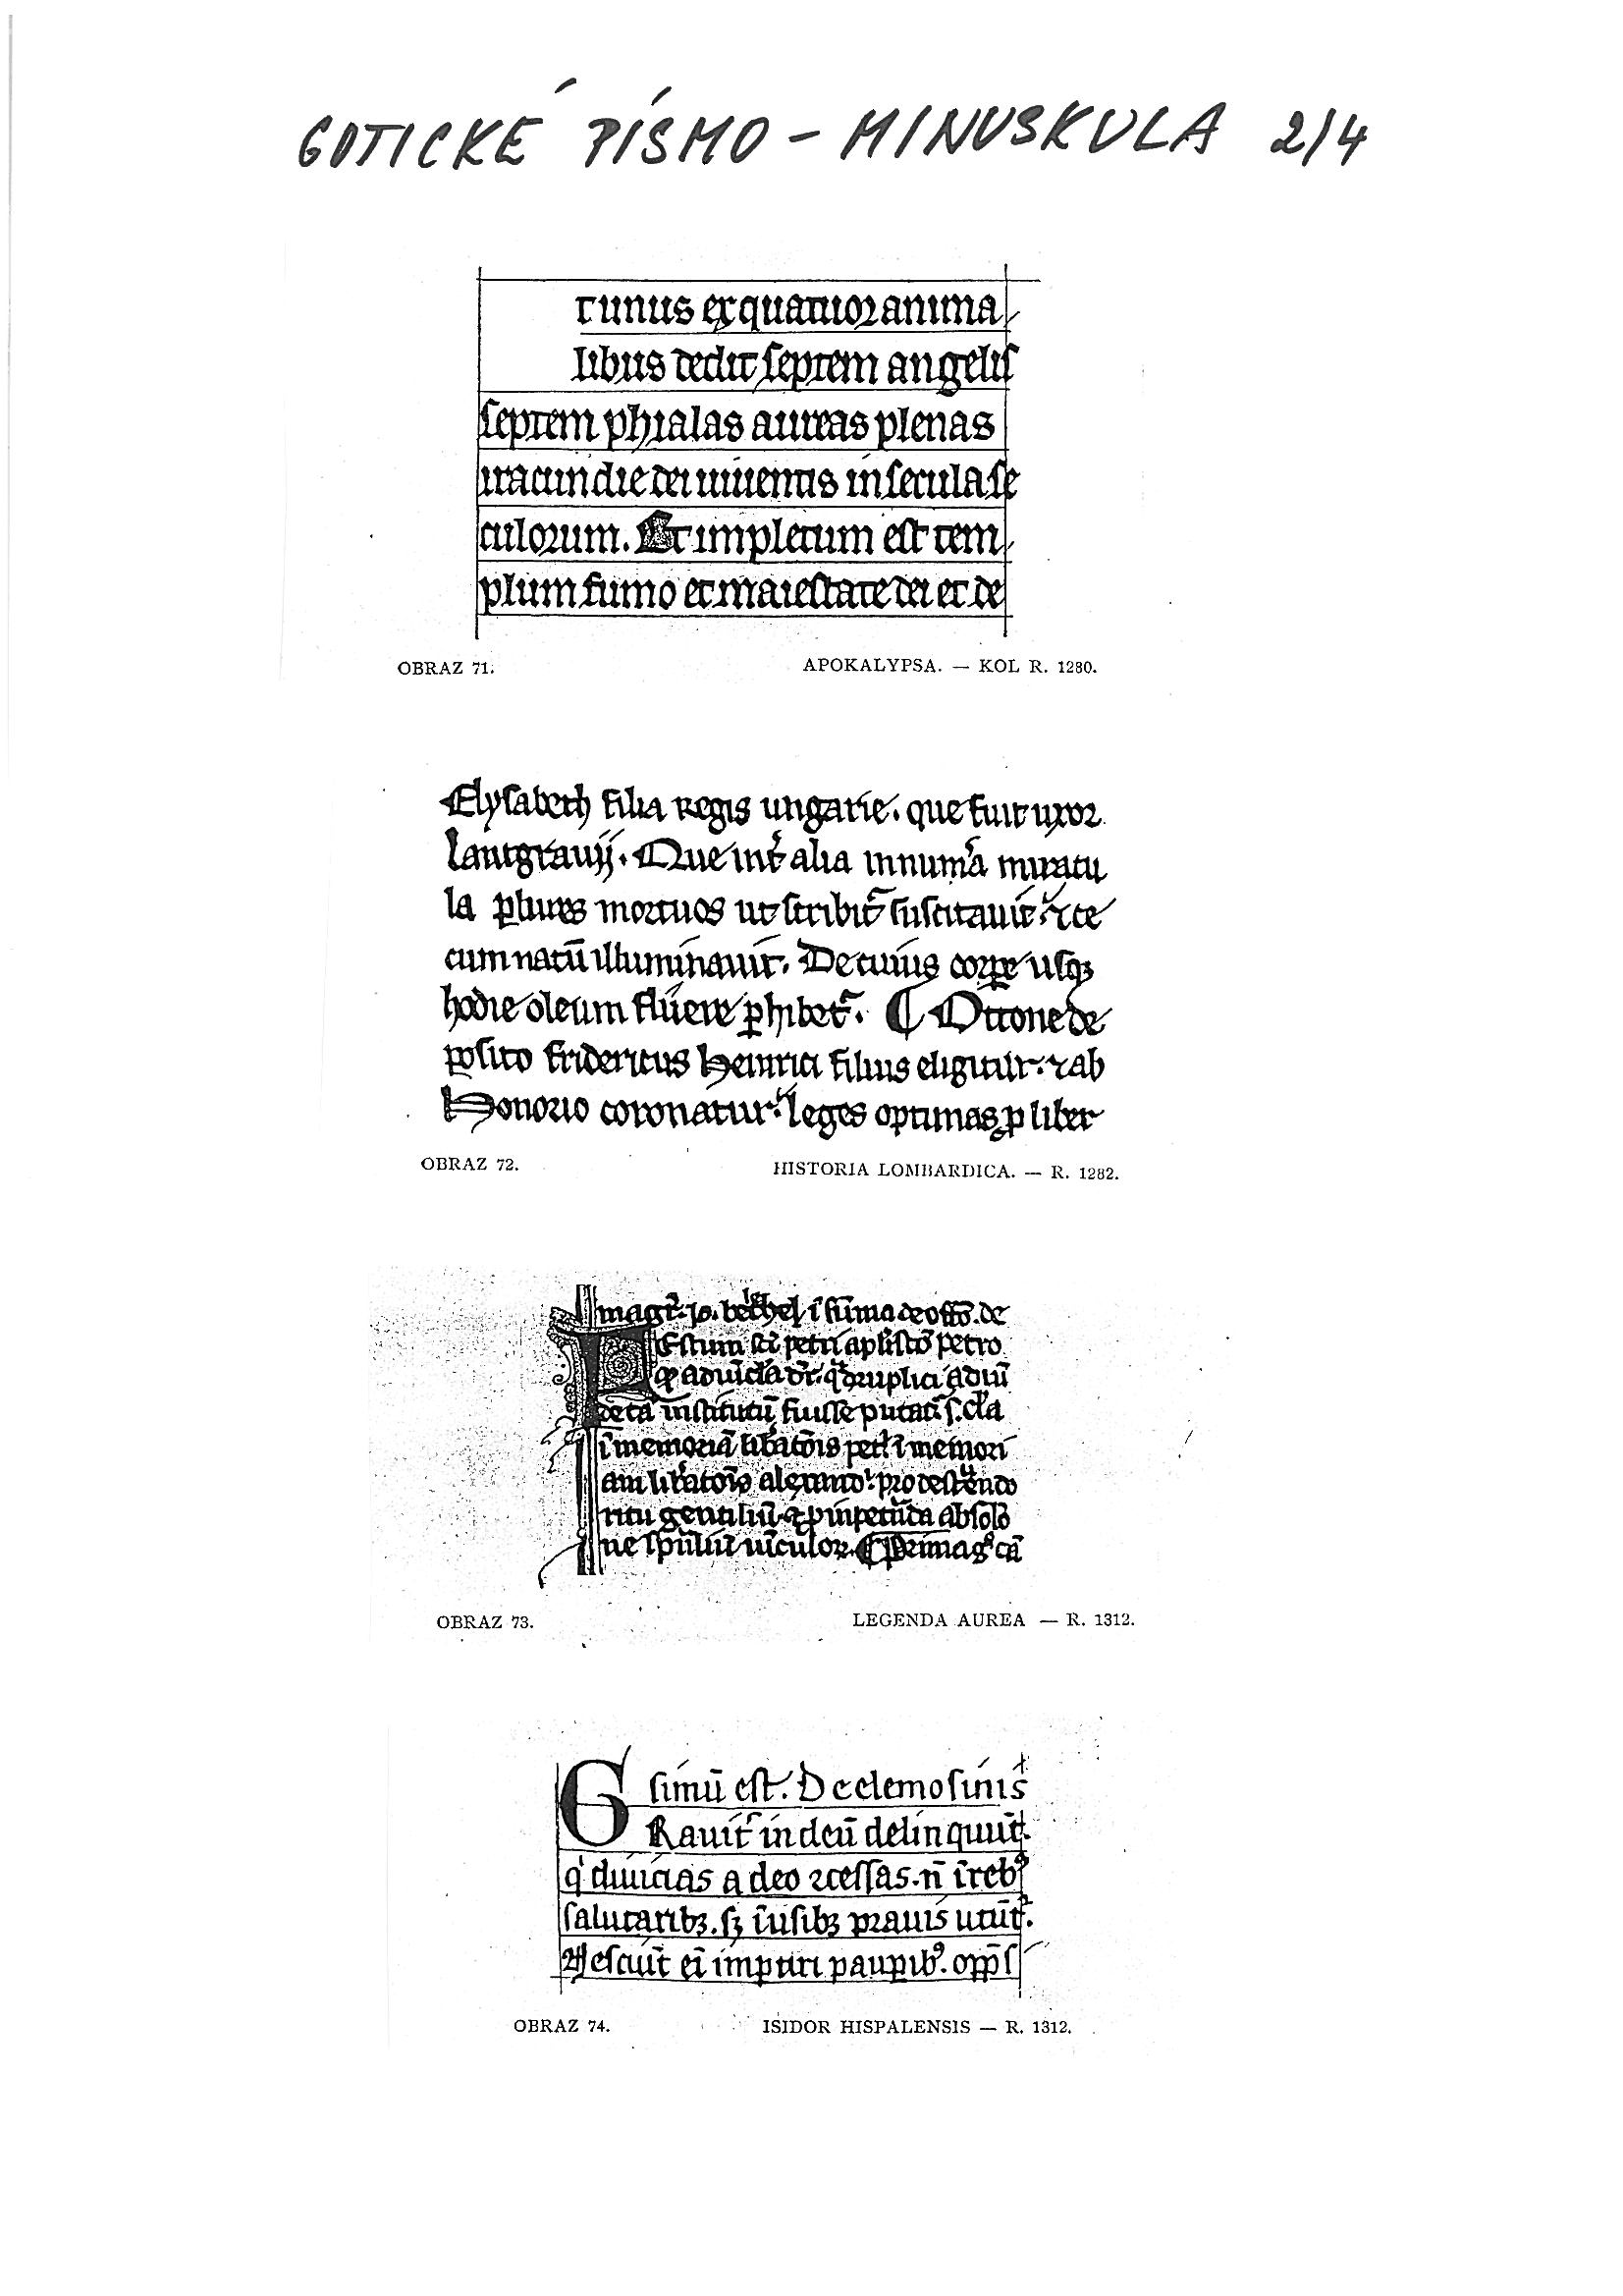 GOTICKÉ PÍSMO - MINUSKULA 2/4
t unus ex quatuor anima
libus dedit septem angelis
septem phialas aureas plenas
iracundie dei uiuentis in secula se
culorum. Et impletum est tem
plum fumo et maiestate dei et de
OBRAZ 71. APOKALYPSA. — KOL R. 1280.
Elysabeth filia Regis ungarie. que fuit uxor
lantgrauij. Que int̉ alia innum̉a miracu
la ꝑlures mortuos ut scribit̉ suscitauit ⁊ ce
cum natū illuminauit. De cuius corꝑe usqꝫ
hodie oleum fluere ꝑhibet̉. ¶ Ottone de
posito fridericus Heinrici filius eligitur. ⁊ ab
Honorio coronatur. leges optimas ꝓ liber
OBRAZ 72. HISTORIA LOMBARDICA. — R. 1282.
magr̄. Jo. ī sūma de offō. de
Estum sc̄i petri
īstitutū fuisse putat̄
ī memoriā lib̉atōis petri ī memori
am lib̉atōis
ritu gentiliū
ne sp̄ualiū uīculoꝝ. ¶ Prima
OBRAZ 73. LEGENDA AUREA — R. 1312.
simū est. De elemosinis
GRauit̉ in deū delinquūt.
q̇ diuicias a deo ꝯcessas. n̄ ī rebꝰ
salutaribꝫ. sꝫ ī usibꝫ prauis utūt̉.
Nesciūt eī impartiri pauꝑibꝰ. opp̄s
OBRAZ 74. ISIDOR HISPALENSIS — R. 1312.